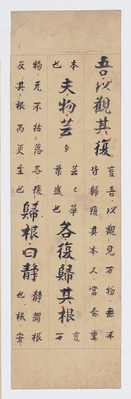 吾以觀其復 言吾以觀見万物無不皆歸復其本人當念重
本也 夫物芸〻 芸〻華葉盛也 各復歸其根 言万
物无不枯落各復反其根而更生也 歸根曰静 静謂根也根安